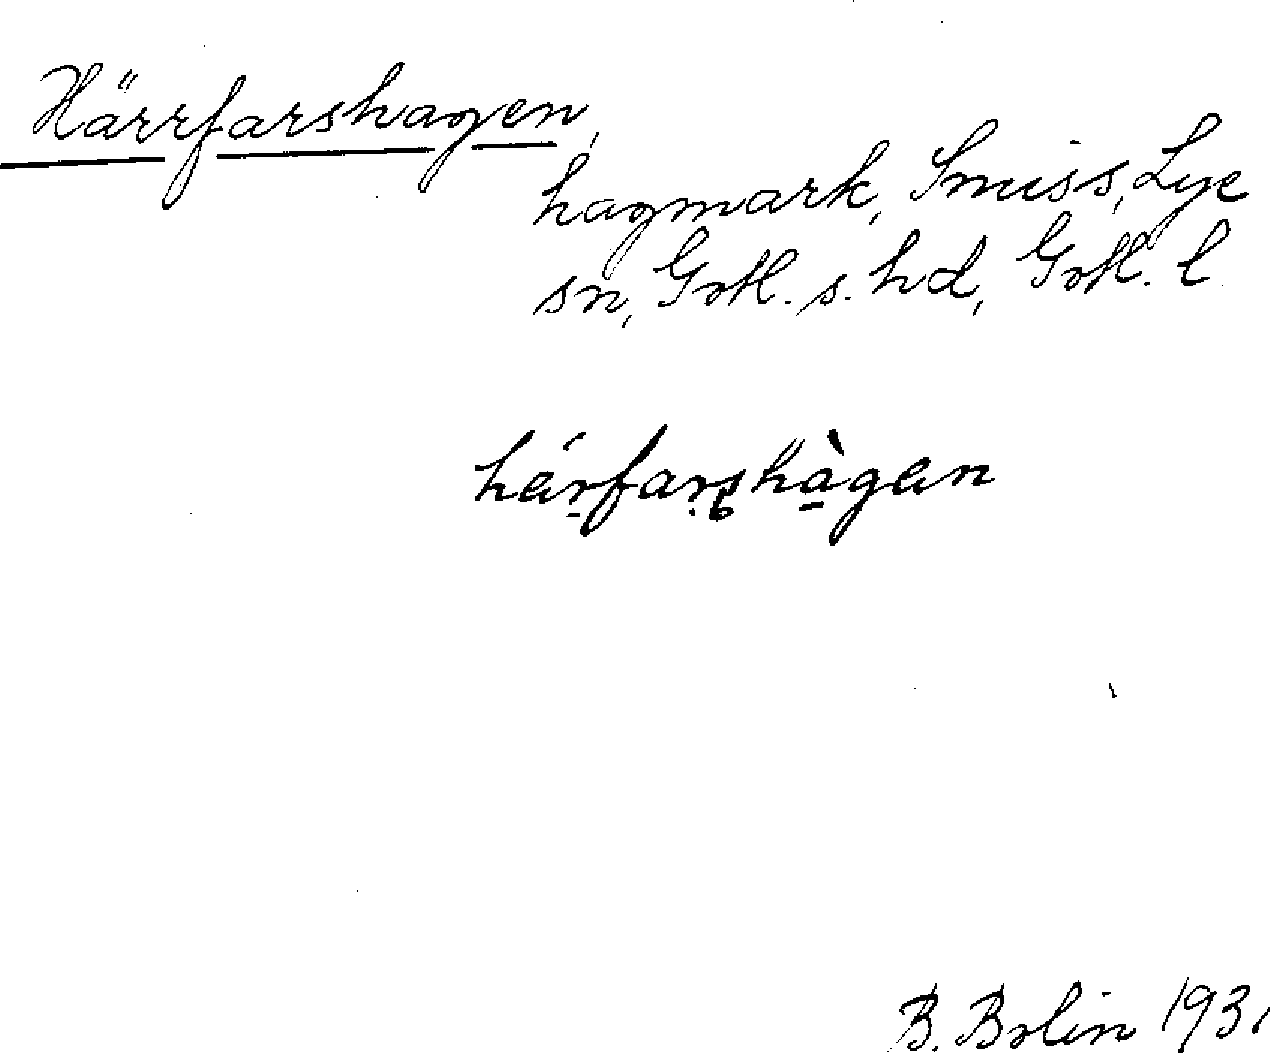 Härrfarshagen,
hagmark, Smiss, Lye
sn, Gotl. s. hd, Gotl. l
B. Bolin 193